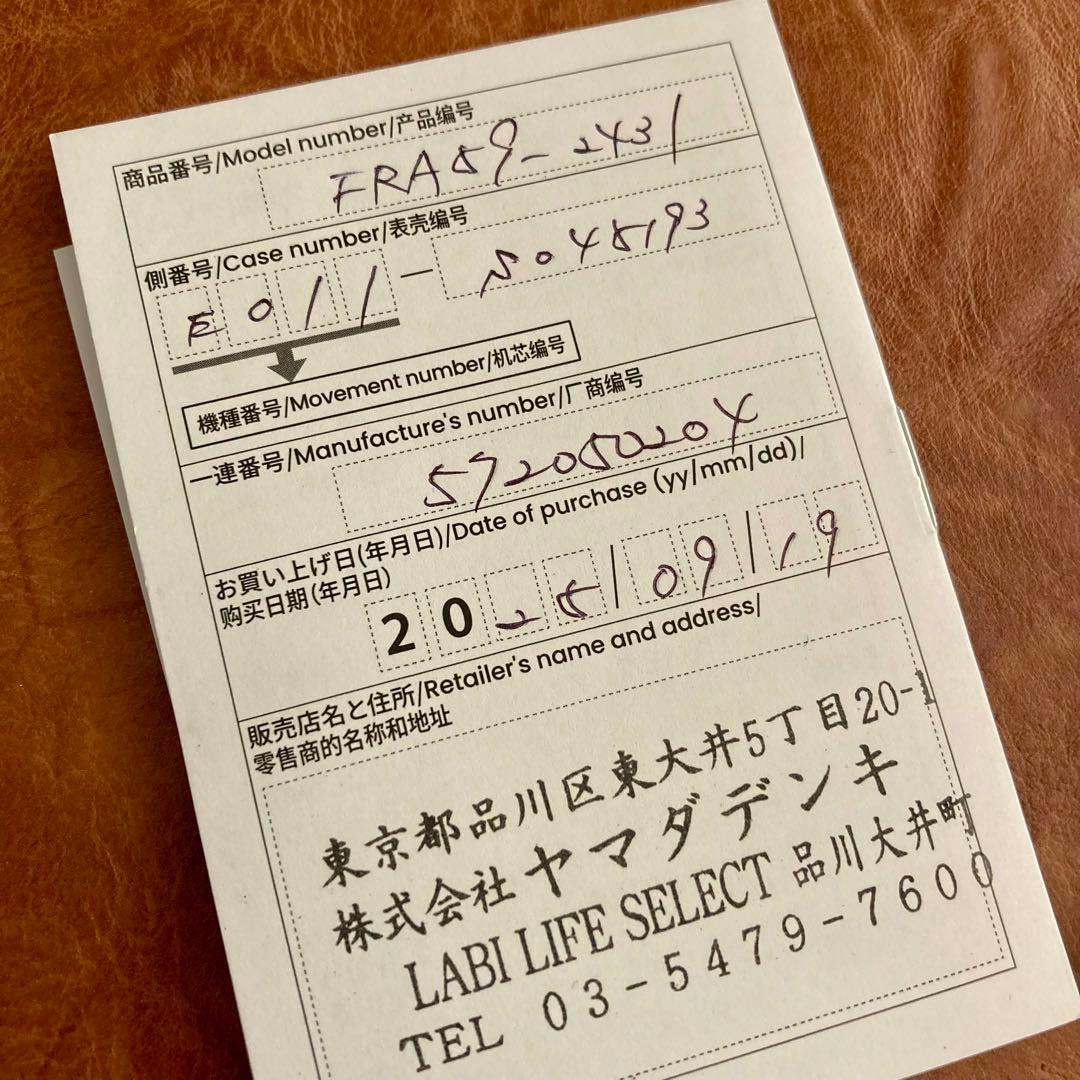 商品番号/Model number/产品编号
FRA59-2431
側番号/Case number/表壳编号
E011-S045193
機種番号/Movement number/机芯编号
一連番号/Manufacture's number/厂商编号
572050204
お買い上げ日(年月日)/Date of purchase (yy/mm/dd)/
购买日期(年月日)
2025/09/19
販売店名と住所/Retailer's name and address/
零售商的名称和地址
東京都品川区東大井5丁目20-1
株式会社ヤマダデンキ
LABI LIFE SELECT 品川大井町
TEL 03-5479-7600